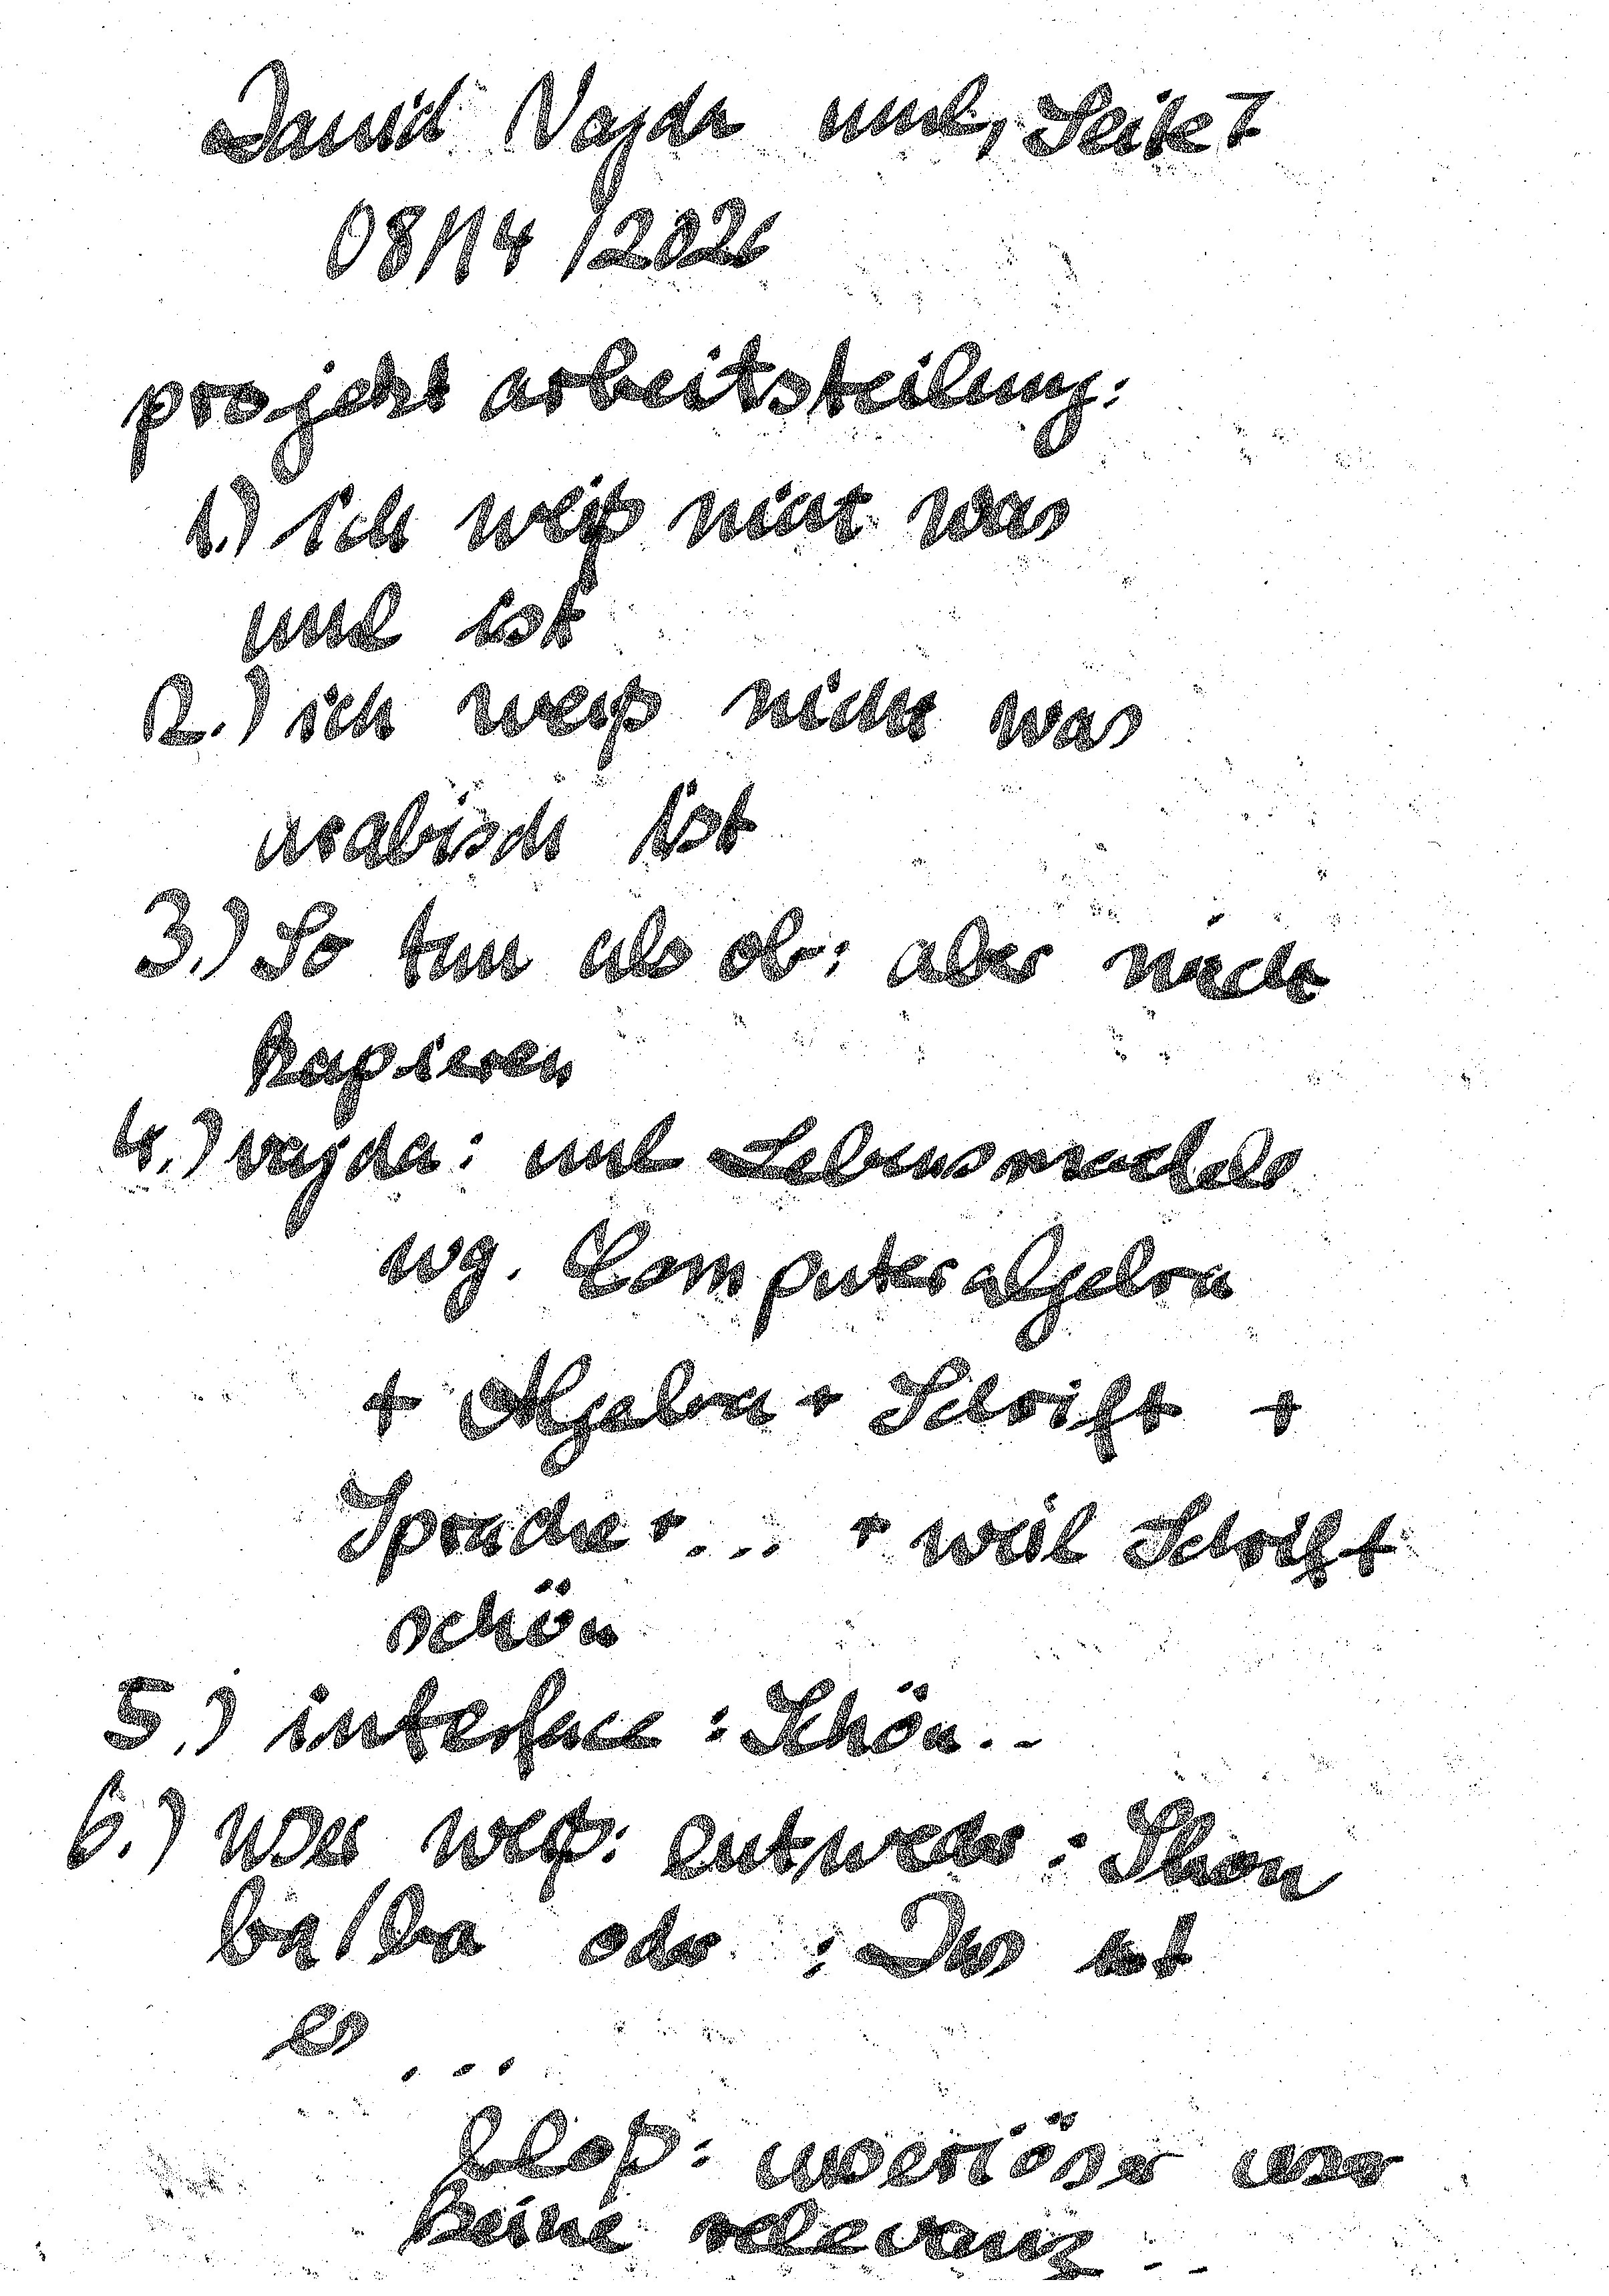 David Vajda uml, Seite 7
08/14/2026
projekt arbeitsteilung:
1.) ich weiß nicht was
uml ist
2.) ich weiß nicht was
arabisch ist
3.) So tun als ob: aber nicht
kapieren
4.) vajda: uml
wg. Computeralgebra
+ Algebra + Schrift +
Sprache + ... + weil Schrift
schön
5.) interface: Schön..
6.) wer weiß: entweder:
ba/ba oder: Das ist
es ...
bloß:
keine relevanz ..